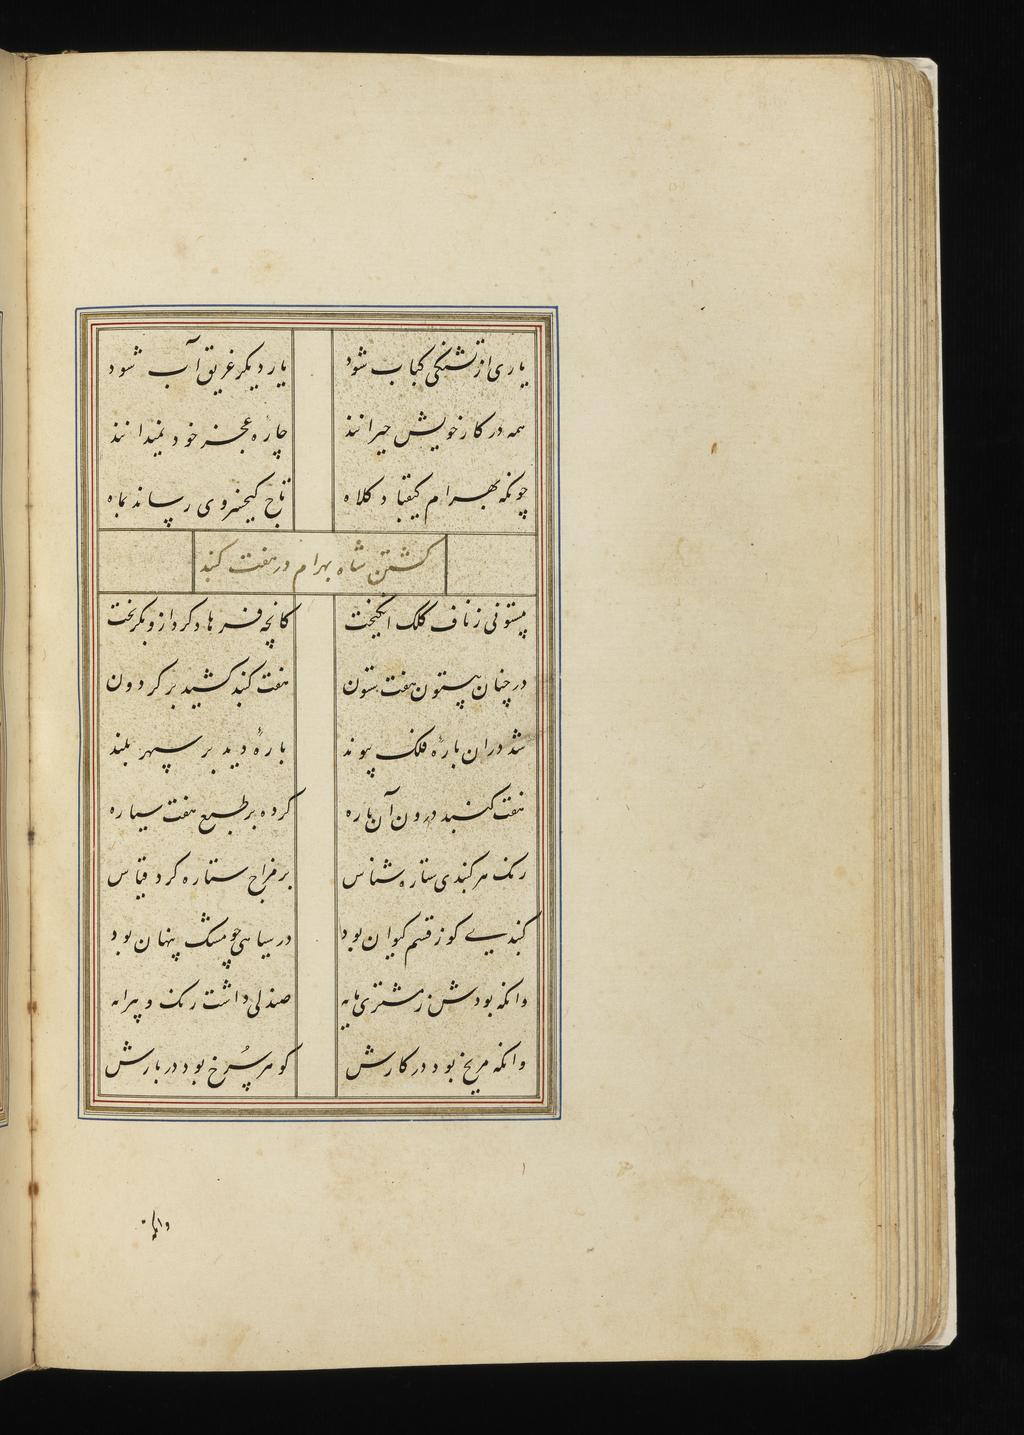 یاری از تشنکی کباب شود یار دیکر غریق آب شود
همه در کار خویش حیرانند چاره عجز خود نمیدانند
چونکه بهرام کیقباد کلاه تاج کیخسروی رساند بماه
کشتن شاه بهرام در هفت کنبد
بیستونی ز ناف کلک انکیخت کانچه فرهاد کرد ازو بکریخت
در چنان بیستون هفت ستون هفت کنبد کشید بر کردون
شد دران باره فلک پیوند بارهٔ دید بر سپهر بلند
هفت کنبد درون آن باره کرده بر طبع هفت سیاره
رنک هر کنبدی ستاره شناس بر مزاج ستاره کرد قیاس
کنبدیے کو ز قسم کیوان بود در سیاهی چو مشک پنهان بود
وانکه بودش ز مشتری مایه صندلی داشت رنک و پیرایه
وانکه مریخ بود در کارش کوهر سرخ بود در بارش
وانکه